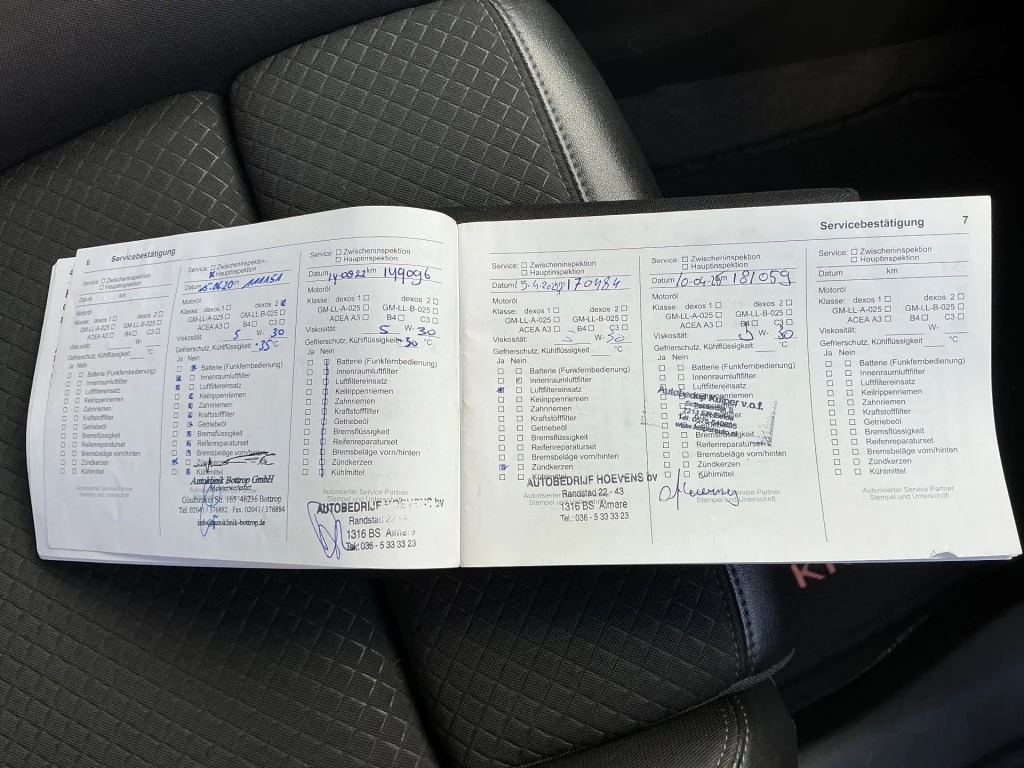 6 Servicebestätigung
Service: Zwischeninspektion
Hauptinspektion
Datum km
Motoröl
Klasse: dexos 1 dexos 2
GM-LL-A-025 GM-LL-B-025
ACEA A3 B4 C3
Viskosität W-
Gefrierschutz, Kühlflüssigkeit °C
Ja Nein
Service: Zwischeninspektion
Hauptinspektion
Datum km 111151
Motoröl
Klasse: dexos 1 dexos 2
GM-LL-A-025 GM-LL-B-025
ACEA A3 B4 C3
Viskosität 5 W- 30
Gefrierschutz, Kühlflüssigkeit -35 °C
Ja Nein
Batterie (Funkfernbedienung)
Innenraumluftfilter
Luftfiltereinsatz
Keilrippenriemen
Zahnriemen
Kraftstofffilter
Getriebeöl
Bremsflüssigkeit
Reifenreparaturset
Bremsbeläge vorn/hinten
Zündkerzen
Kühlmittel
Autoklinik Bottrop GmbH
Meisterwerkstatt
Gladbecker Str. 165 46236 Bottrop
Tel. 02041 / 376882 Fax. 02041 / 376884
info@autoklinik-bottrop.de
Service: Zwischeninspektion
Hauptinspektion
Datum 14-0922 km 149096
Motoröl
Klasse: dexos 1 dexos 2
GM-LL-A-025 GM-LL-B-025
ACEA A3 B4 C3
Viskosität 5 W- 30
Gefrierschutz, Kühlflüssigkeit -30 °C
Ja Nein
Batterie (Funkfernbedienung)
Innenraumluftfilter
Luftfiltereinsatz
Keilrippenriemen
Zahnriemen
Kraftstofffilter
Getriebeöl
Bremsflüssigkeit
Reifenreparaturset
Bremsbeläge vorn/hinten
Zündkerzen
Kühlmittel
Autorisierter Service Partner
Stempel und Unterschrift
AUTOBEDRIJF HOEVENS bv
Randstad 22 - 43
1316 BS Almere
Tel.: 036 - 5 33 33 23
Servicebestätigung 7
Service: Zwischeninspektion
Hauptinspektion
Datum km 170484
Motoröl
Klasse: dexos 1 dexos 2
GM-LL-A-025 GM-LL-B-025
ACEA A3 B4 C3
Viskosität 5 W- 30
Gefrierschutz, Kühlflüssigkeit °C
Ja Nein
Batterie (Funkfernbedienung)
Innenraumluftfilter
Luftfiltereinsatz
Keilrippenriemen
Zahnriemen
Kraftstofffilter
Getriebeöl
Bremsflüssigkeit
Reifenreparaturset
Bremsbeläge vorn/hinten
Zündkerzen
Kühlmittel
AUTOBEDRIJF HOEVENS bv
Autorisierter Service Partner
Stempel und Unterschrift
Randstad 22 - 43
1316 BS Almere
Tel.: 036 - 5 33 33 23
Service: Zwischeninspektion
Hauptinspektion
Datum km 181059
Motoröl
Klasse: dexos 1 dexos 2
GM-LL-A-025 GM-LL-B-025
ACEA A3 B4 C3
Viskosität 5 W- 30
Gefrierschutz, Kühlflüssigkeit °C
Ja Nein
Batterie (Funkfernbedienung)
Innenraumluftfilter
Luftfiltereinsatz
Autobedrijf Kuiper v.o.f.
Bremsflüssigkeit
Reifenreparaturset
Bremsbeläge vorn/hinten
Zündkerzen
Kühlmittel
Service Partner
Unterschrift
Service: Zwischeninspektion
Hauptinspektion
Datum km
Motoröl
Klasse: dexos 1 dexos 2
GM-LL-A-025 GM-LL-B-025
ACEA A3 B4 C3
Viskosität W-
Gefrierschutz, Kühlflüssigkeit °C
Ja Nein
Batterie (Funkfernbedienung)
Innenraumluftfilter
Luftfiltereinsatz
Keilrippenriemen
Zahnriemen
Kraftstofffilter
Getriebeöl
Bremsflüssigkeit
Reifenreparaturset
Bremsbeläge vorn/hinten
Zündkerzen
Kühlmittel
Autorisierter Service Partner
Stempel und Unterschrift